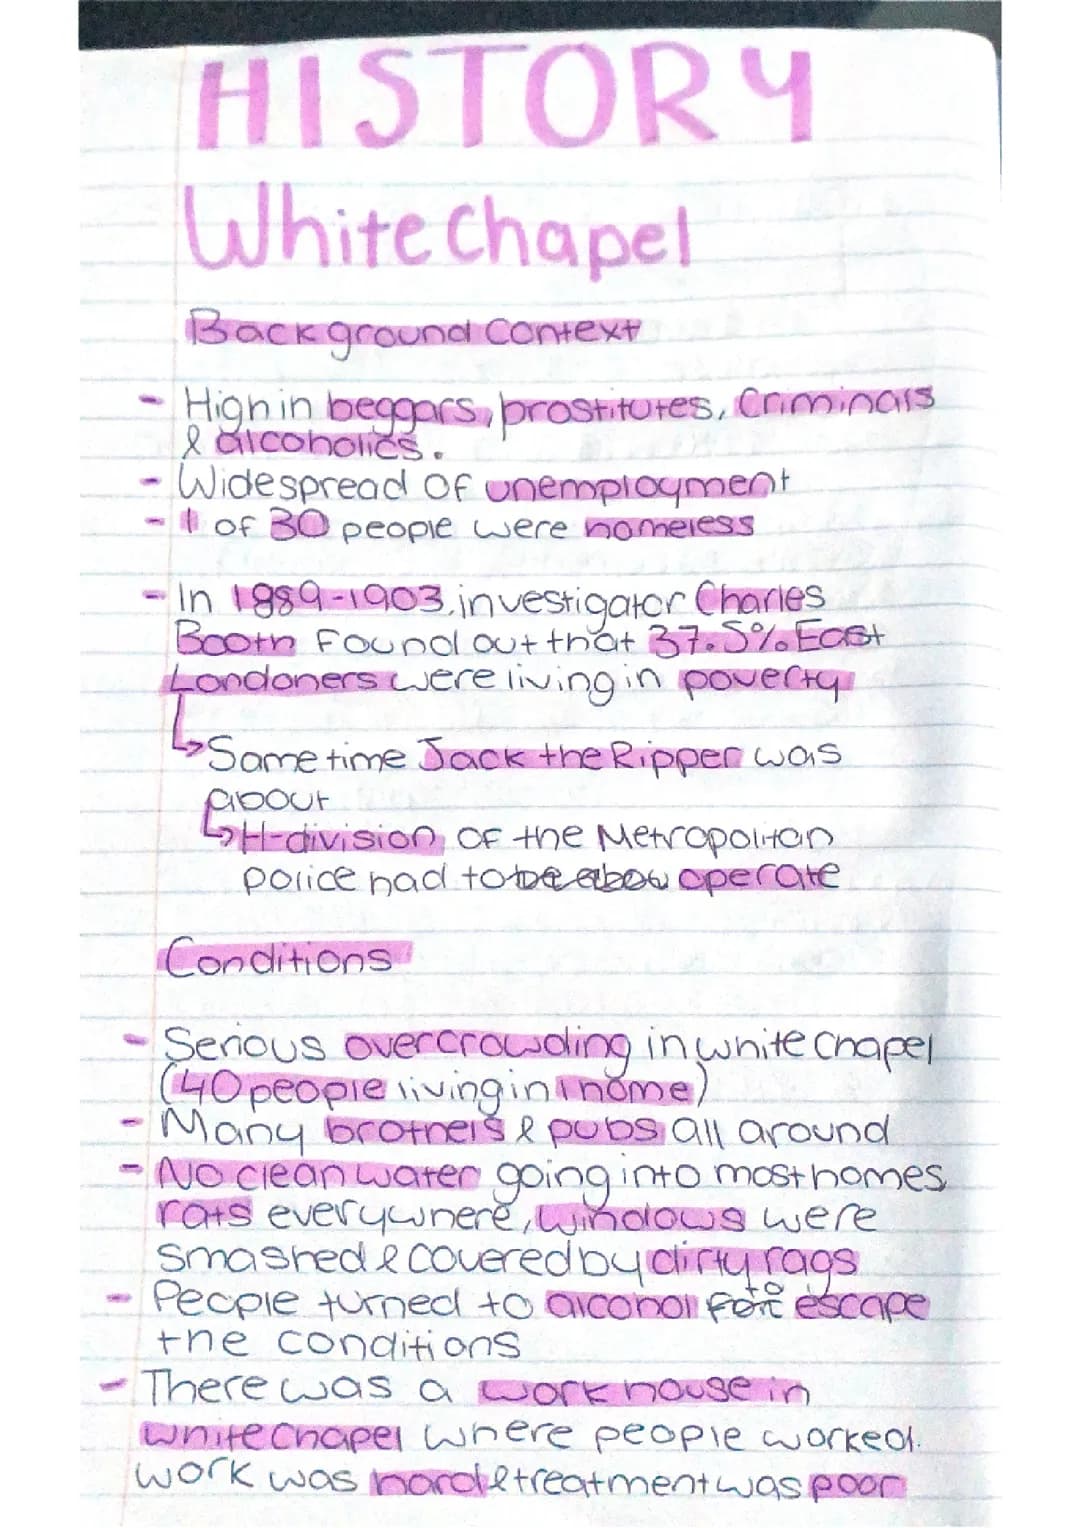 HISTORY
Whitechapel
Background Context
- High in beggars, prostitutes, Criminals
& alcoholics.
- Widespread of unemployment
- 1 of 30 people were homeless
- In 1889-1903, investigator Charles
Booth found out that 37.5% East
Londoners were living in poverty
↳ Same time Jack the Ripper was
about
↳ H-division of the Metropolitan
police had to operate
Conditions
- Serious overcrowding in whitechapel
(40 people living in 1 home)
- Many brothels & pubs all around
- No clean water going into most homes,
rats everywhere, windows were
smashed & covered by dirty rags
- People turned to alcohol to escape
the conditions
- There was a workhouse in
whitechapel where people worked.
work was hard & treatment was poor